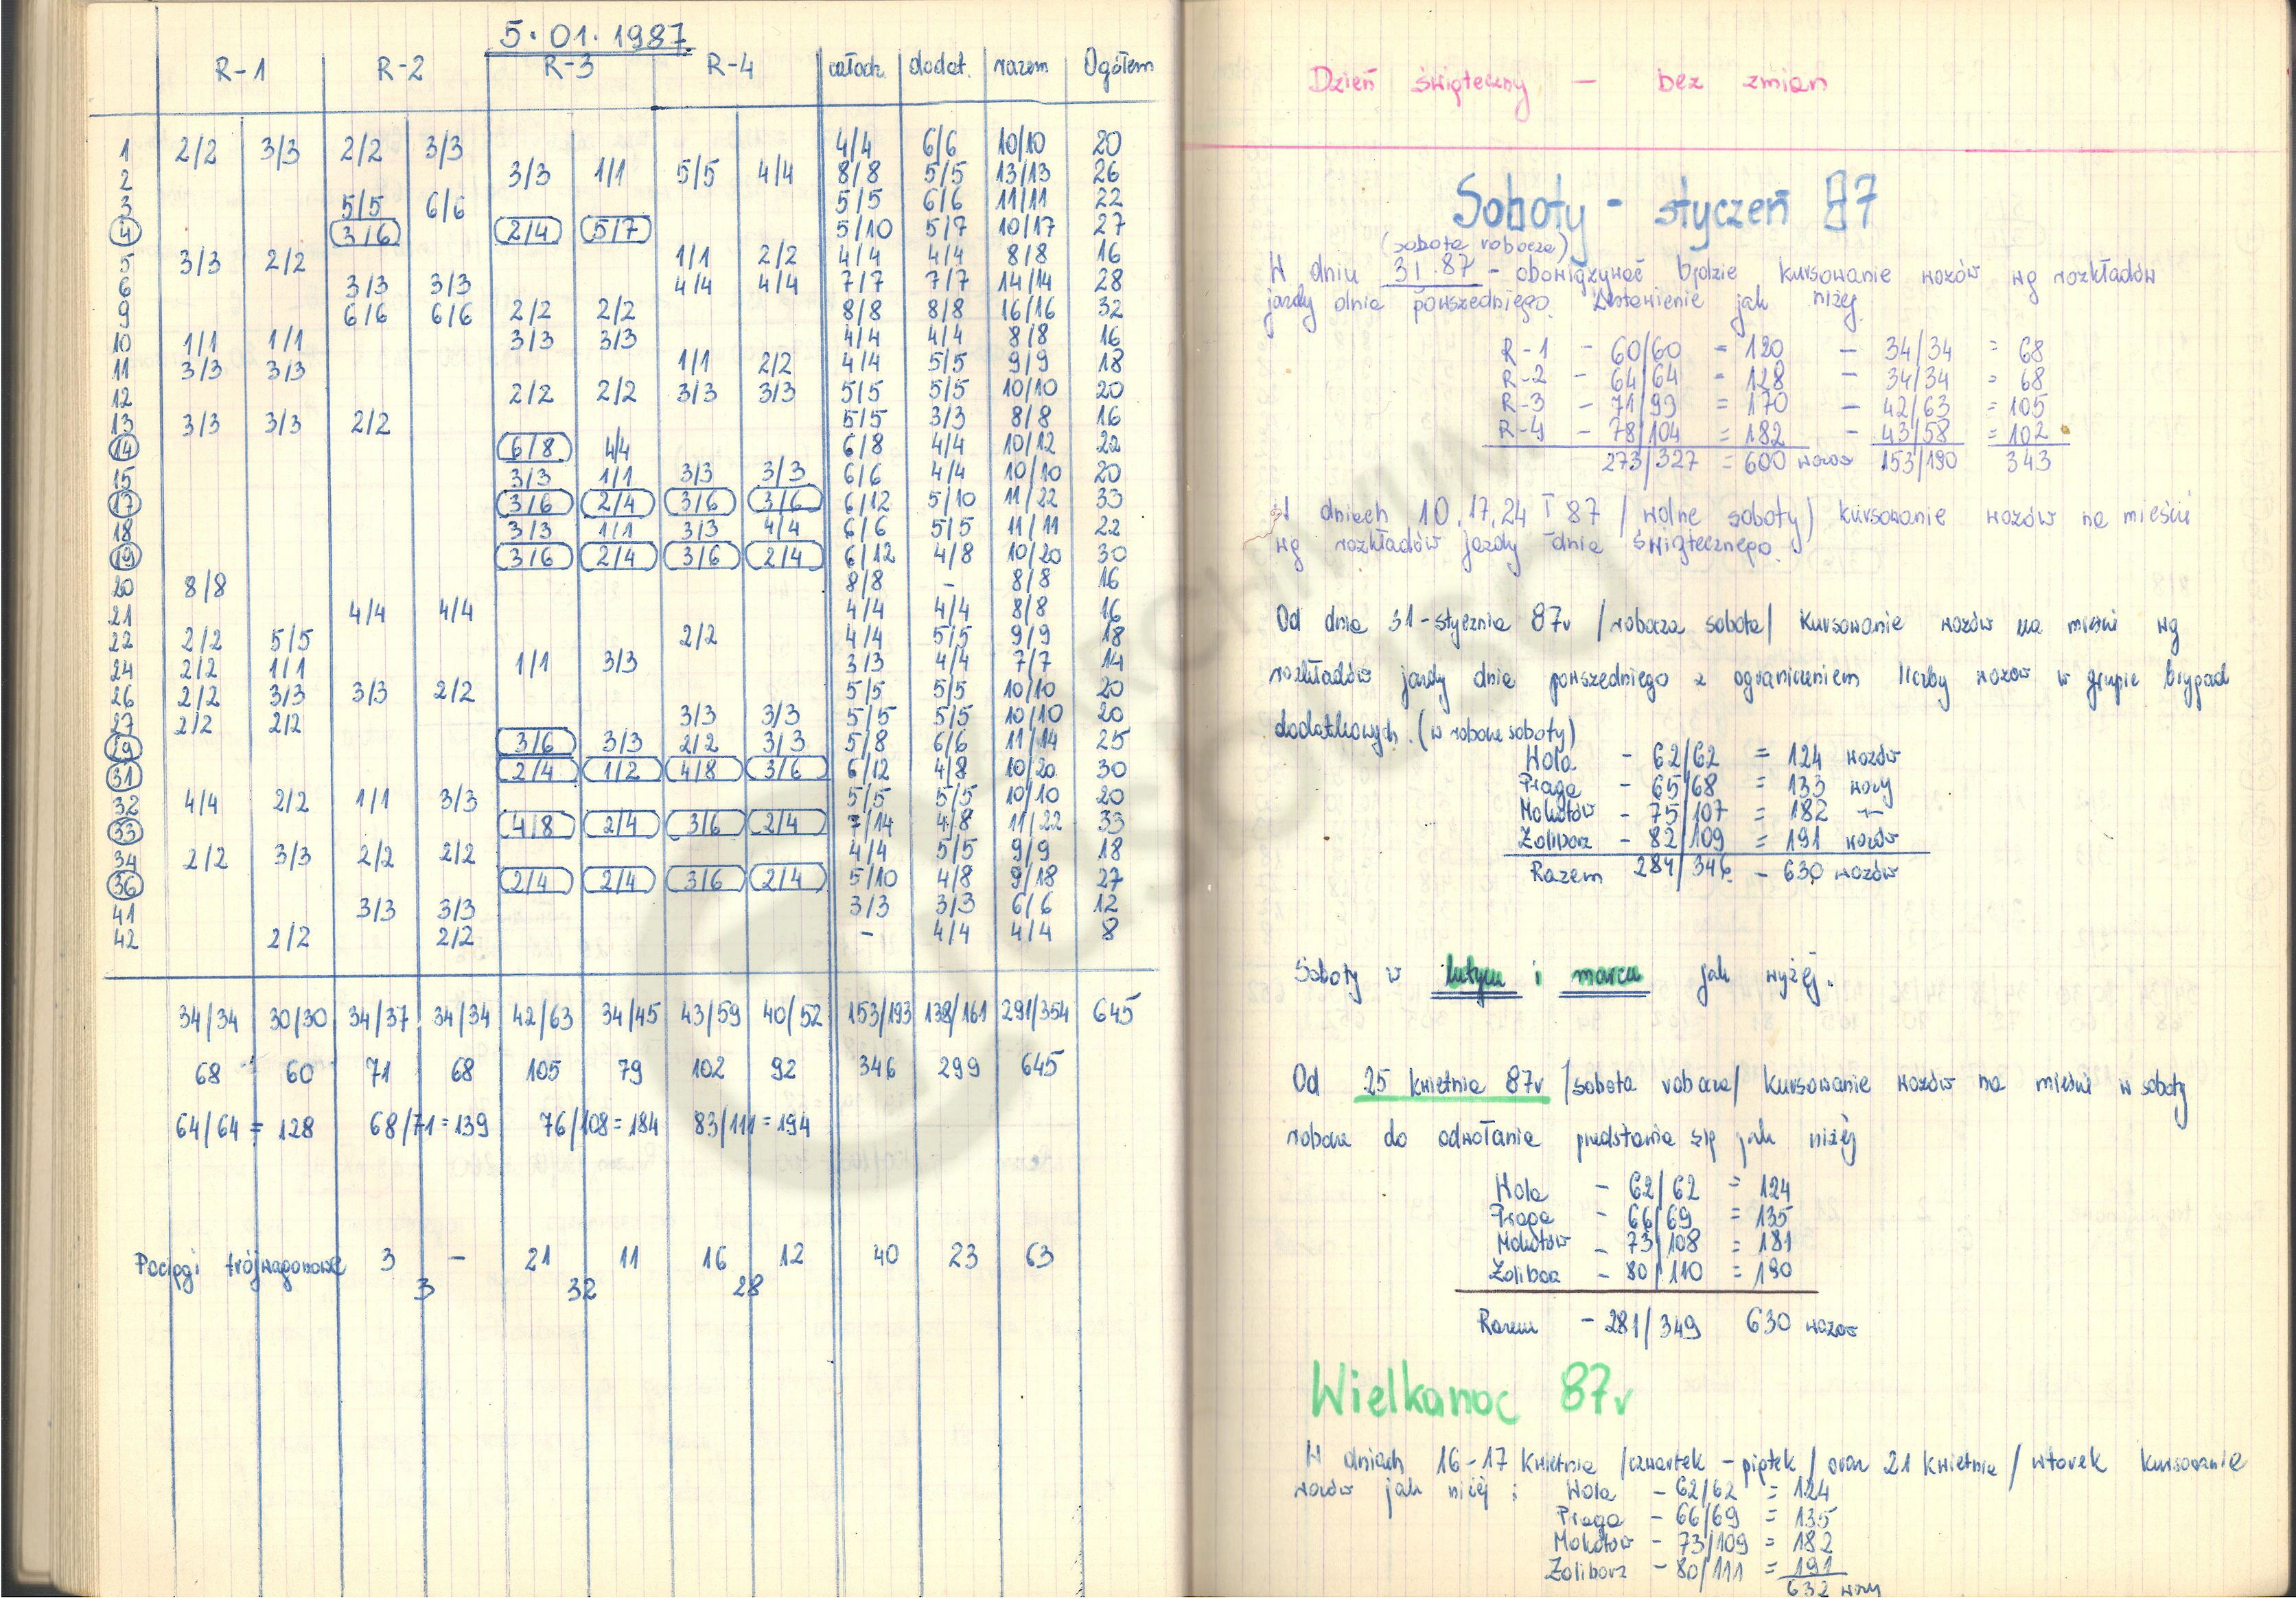 5.01.1987
R-1 R-2 R-3 R-4 całodz. dodat. razem Ogółem
1 2/2 3/3 2/2 3/3 4/4 6/6 10/10 20
2 3/3 1/1 5/5 4/4 8/8 5/5 13/13 26
3 5/5 6/6 5/5 6/6 11/11 22
4 3/6 2/4 5/7 5/10 5/7 10/17 27
5 3/3 2/2 1/1 2/2 4/4 4/4 8/8 16
6 3/3 3/3 4/4 4/4 7/7 7/7 14/14 28
9 6/6 6/6 2/2 2/2 8/8 8/8 16/16 32
10 1/1 1/1 3/3 3/3 4/4 4/4 8/8 16
11 3/3 3/3 1/1 2/2 4/4 5/5 9/9 18
12 2/2 2/2 3/3 3/3 5/5 5/5 10/10 20
13 3/3 3/3 2/2 5/5 3/3 8/8 16
14 6/8 4/4 6/8 4/4 10/12 22
15 3/3 1/1 3/3 3/3 6/6 4/4 10/10 20
17 3/6 2/4 3/6 3/6 6/12 5/10 11/22 33
18 3/3 1/1 3/3 4/4 6/6 5/5 11/11 22
19 3/6 2/4 3/6 2/4 6/12 4/8 10/20 30
20 8/8 8/8 - 8/8 16
21 4/4 4/4 4/4 4/4 8/8 16
22 2/2 5/5 2/2 4/4 5/5 9/9 18
24 2/2 1/1 1/1 3/3 3/3 4/4 7/7 14
26 2/2 3/3 3/3 2/2 5/5 5/5 10/10 20
27 2/2 2/2 3/3 3/3 5/5 5/5 10/10 20
29 3/6 3/3 2/2 3/3 5/8 6/6 11/14 25
31 2/4 1/2 4/8 3/6 6/12 4/8 10/20 30
32 4/4 2/2 1/1 3/3 5/5 5/5 10/10 20
33 4/8 2/4 3/6 2/4 7/14 4/8 11/22 33
34 2/2 3/3 2/2 2/2 4/4 5/5 9/9 18
36 2/4 2/4 3/6 2/4 5/10 4/8 9/18 27
41 3/3 3/3 3/3 3/3 6/6 12
42 2/2 2/2 - 4/4 4/4 8
34/34 30/30 34/37 34/34 42/63 34/45 43/59 40/52 153/193 138/161 291/354 645
68 60 71 68 105 79 102 92 346 299 645
64/64 = 128 68/71 = 139 76/108 = 184 83/111 = 194
Pociągi trójwagonowe 3 - 21 11 16 12 40 23 63
3 32 28
Dzień świąteczny — bez zmian
Soboty - styczeń 87
(sobota robocza)
W dniu 3 I. 87 - obowiązywać będzie kursowanie wozów wg rozkładów
jazdy dnia powszedniego. Zestawienie jak niżej
R-1 - 60/60 = 120 - 34/34 = 68
R-2 - 64/64 = 128 - 34/34 = 68
R-3 - 71/99 = 170 - 42/63 = 105
R-4 - 78/104 = 182 - 43/58 = 102
273/327 = 600 wozów 153/190 343
W dniach 10, 17, 24 I 87 /wolne soboty/ kursowanie wozów na mieście
wg rozkładów jazdy dnia świątecznego.
Od dnia 31-stycznia 87r /robocza sobota/ kursowanie wozów na mieście wg
rozkładów jazdy dnia powszedniego z ograniczeniem liczby wozów w grupie brygad
dodatkowych. (w robocze soboty)
Wola - 62/62 = 124 wozów
Praga - 65/68 = 133 wozy
Mokotów - 75/107 = 182 -"-
Żoliborz - 82/109 = 191 wozów
Razem 284/346 - 630 wozów
Soboty w lutym i marcu jak wyżej.
Od 25 kwietnia 87r /sobota robocza/ kursowanie wozów na mieście w soboty
robocze do odwołania przedstawia się jak niżej
Wola - 62/62 = 124
Praga - 66/69 = 135
Mokotów - 73/108 = 181
Żoliborz - 80/110 = 190
Razem - 281/349 630 wozów
Wielkanoc 87r
W dniach 16-17 kwietnia /czwartek - piątek/ oraz 21 kwietnia /wtorek kursowanie
wozów jak niżej:
Wola - 62/62 = 124
Praga - 66/69 = 135
Mokotów - 73/109 = 182
Żoliborz - 80/111 = 191
632 wozy